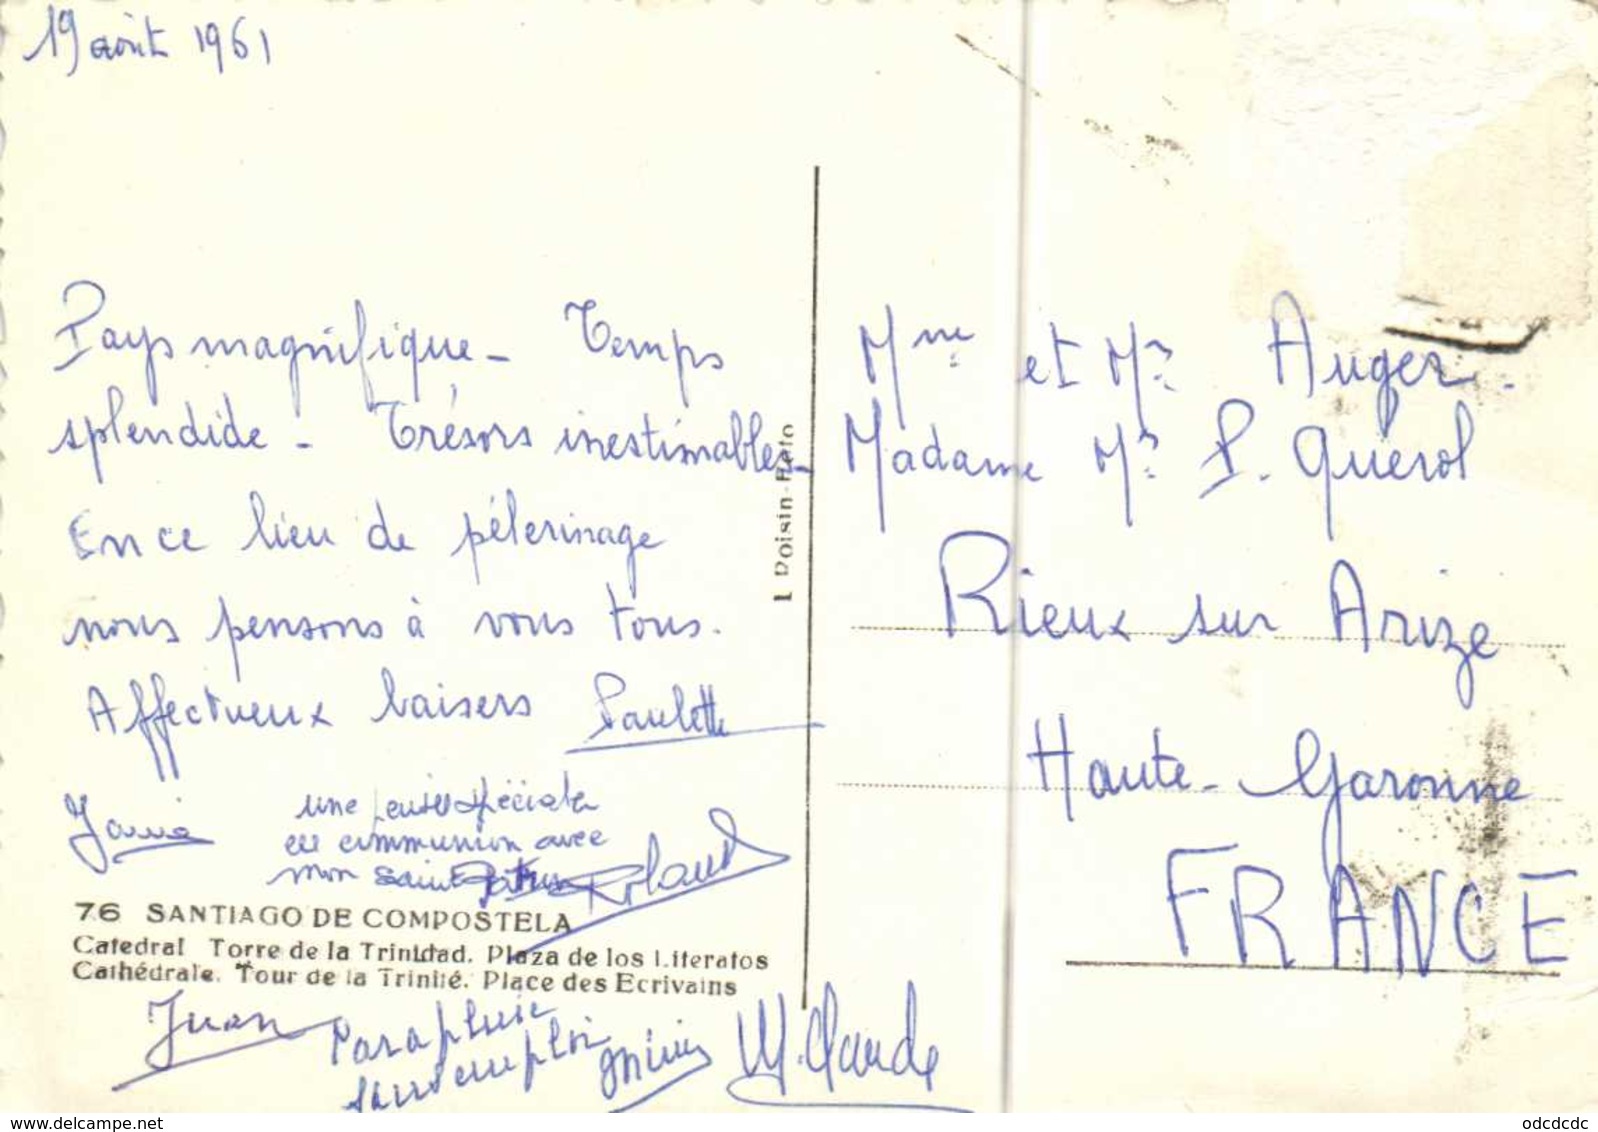 19 août 1961
Pays magnifique - Temps
splendide - Trésors inestimables -
En ce lieu de pélerinage
nous pensons à vous tous.
Affectueux baisers Paulette
une pensée spéciale
en communion avec
mon saint Roland
76 SANTIAGO DE COMPOSTELA
Catedral Torre de la Trinidad. Plaza de los Literatos
Cathédrale. Tour de la Trinité. Place des Ecrivains
Juan Parapluie
sans emploi
M. Claude
Mme et Mr Auger.
Madame Mr P. Querol
Rieux sur Arize
Haute-Garonne
FRANCE
delcampe.net
odcdcdc